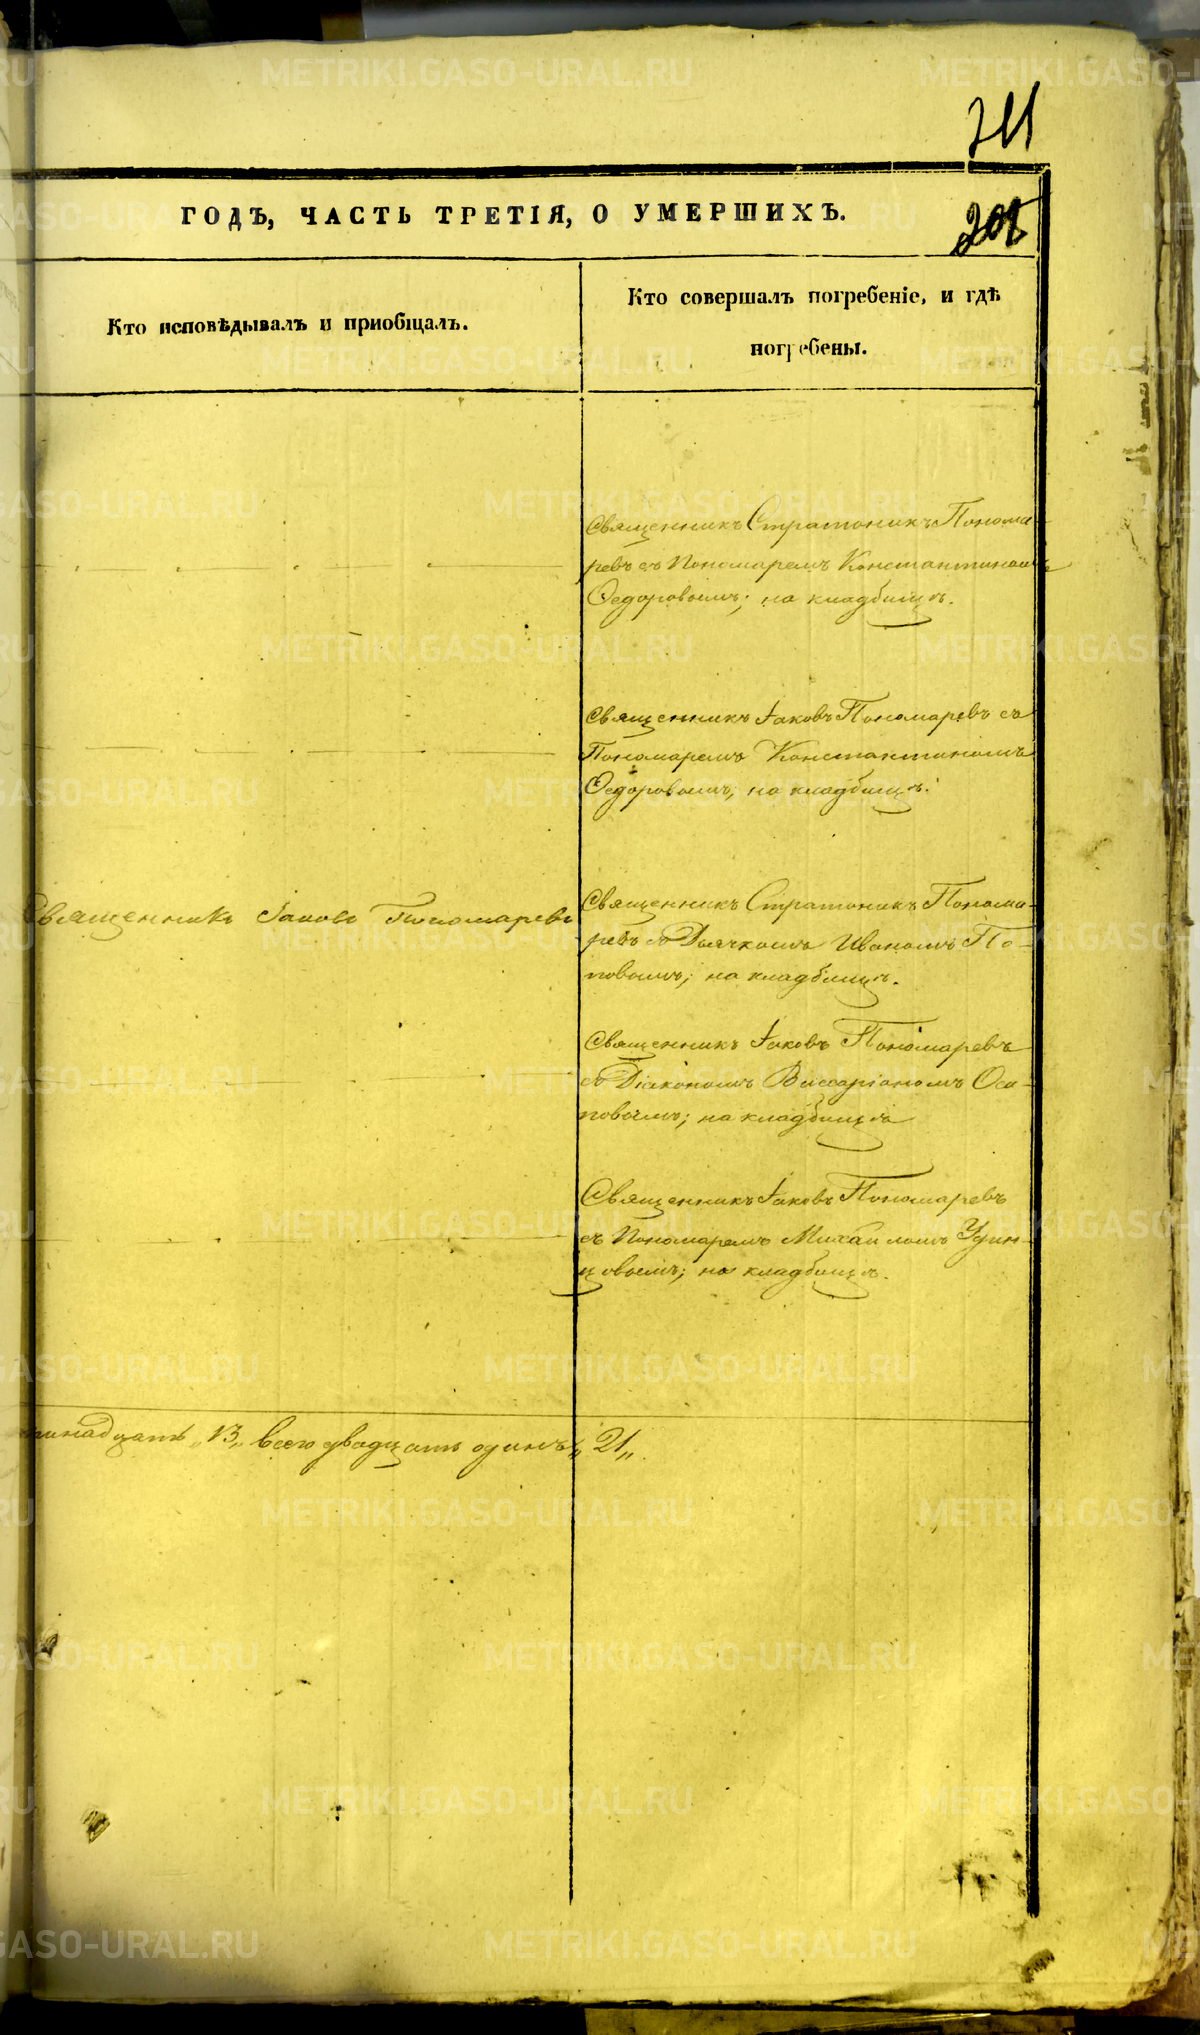 211
ГОДЪ, ЧАСТЬ ТРЕТІЯ, О УМЕРШИХЪ.
Кто исповѣдывалъ и пріобщалъ.
Кто совершалъ погребеніе, и гдѣ
погребены.
Священникъ Стратоникъ Понома-
ревъ съ Пономаремъ Константиномъ
Ѳедоровымъ; на кладбищѣ.
Священникъ Іаковъ Пономаревъ съ
Пономаремъ Константиномъ
Ѳедоровымъ, на кладбищѣ.
Священникъ Іаковъ Пономаревъ
Священникъ Стратоникъ Понома-
ревъ съ Дьячкомъ Иваномъ По-
повымъ; на кладбищѣ.
Священникъ Іаковъ Пономаревъ
съ Діакономъ Виссаріономъ Оси-
повымъ; на кладбищѣ
Священникъ Іаковъ Пономаревъ
съ Пономаремъ Михаиломъ Удин-
цовымъ; на кладбищѣ.
"13" всего двадцать одинъ "21"
METRIKI.GASO-URAL.RU